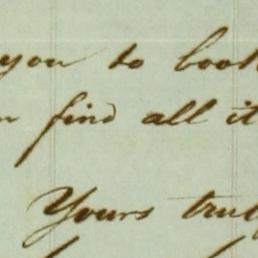 you to book
find all it
Yours truly